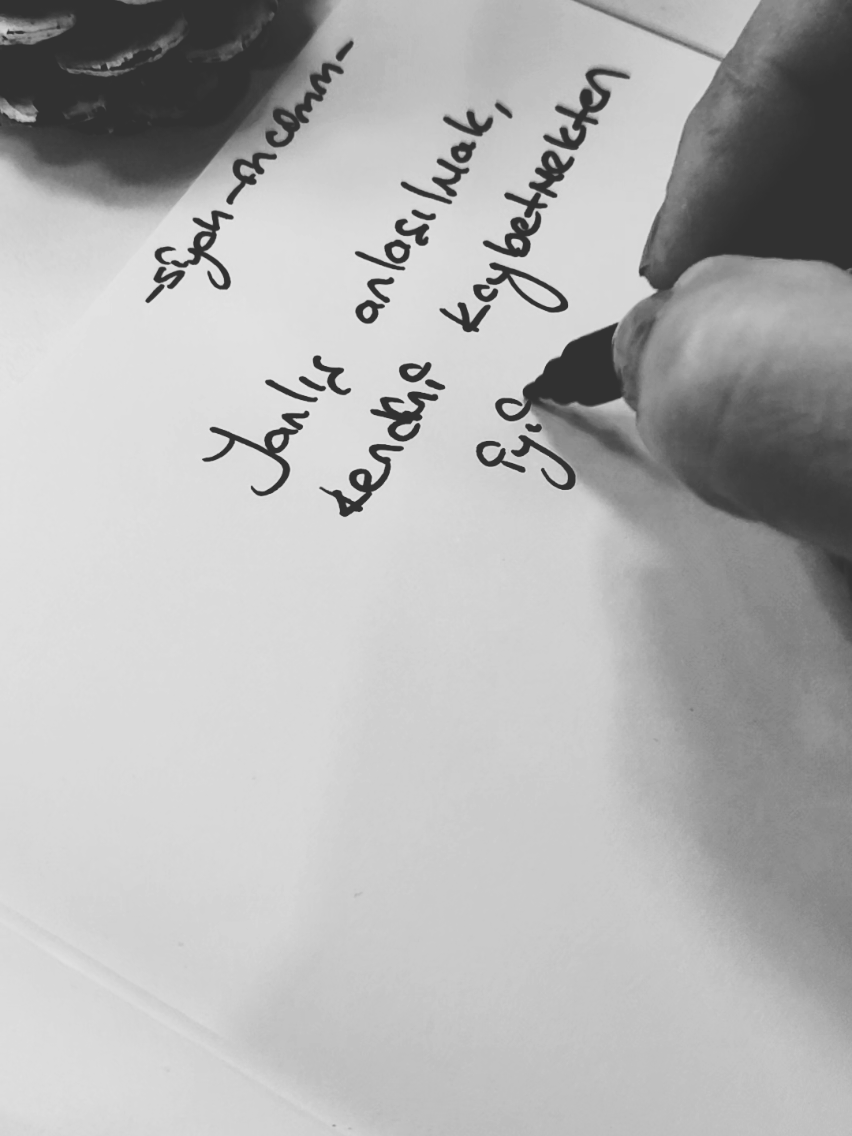 -Siyah-incemm-
Yanlış anlaşılmak,
kendini kaybetmekten
iyi